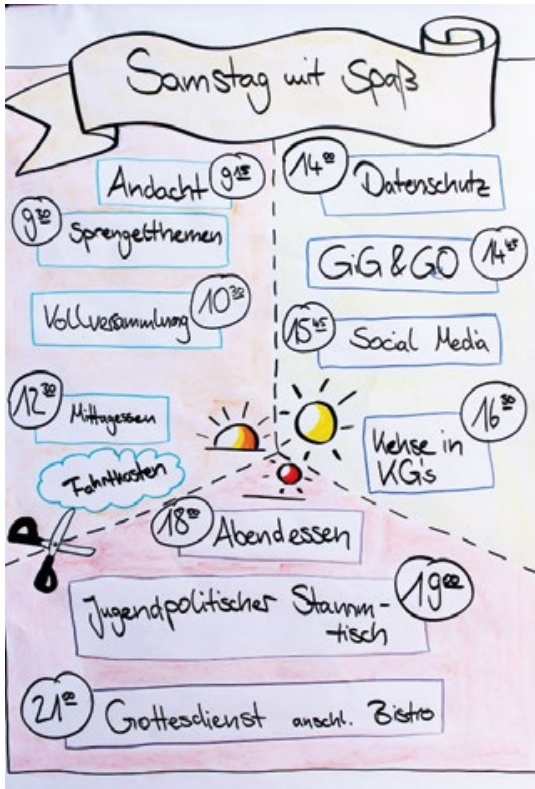 Samstag mit Spaß
Andacht 9 15
9 30 Sprengelthemen
Vollversammlung 10 30
12 30 Mittagessen
Fahrtkosten
14 00 Datenschutz
GiG & GO 14 45
15 45 Social Media
16 30
Kekse in
KG's
18 00 Abendessen
19 00
Jugendpolitischer Stamm-
tisch
21 00 Gottesdienst anschl. Bistro